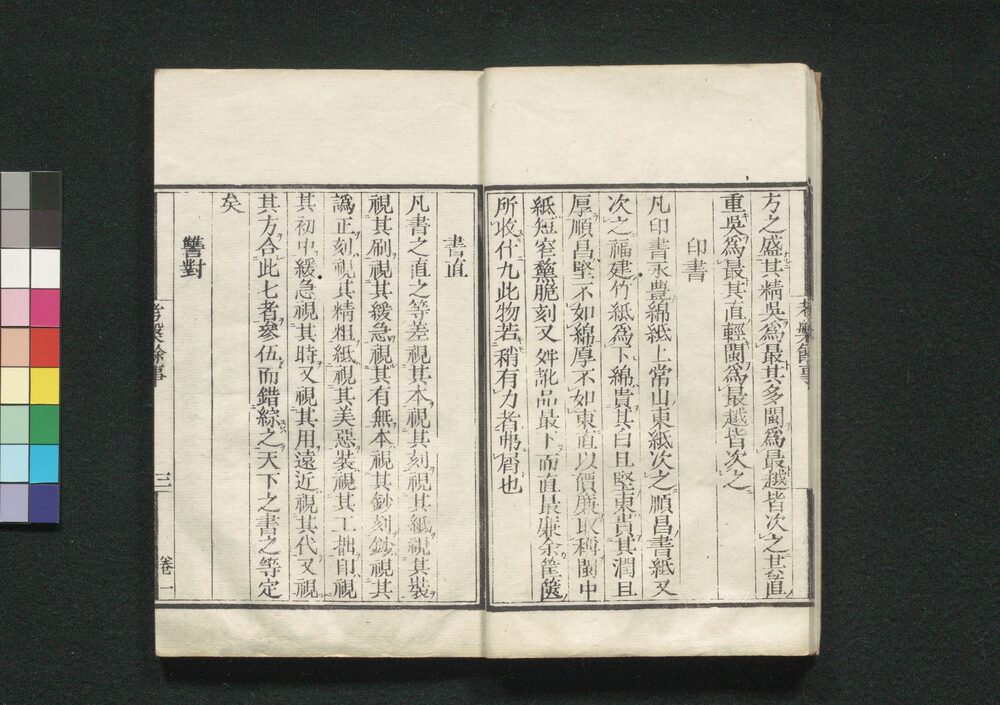 方之盛其精吳爲最其多閩爲最越皆次之其直
重吳爲最其直輕閩爲最越皆次之
印書
凡印書永豊綿紙上常山東紙次之順昌書紙又
次之福建竹紙爲下綿貴其白且堅東貴其潤且
厚順昌堅不如綿厚不如東直以價廉取稱閩中
紙短窄黧脆刻又舛訛品最下而直最廉余筐篋
所收什九此物若稍有力者弗屑也
書直
凡書之直之等差視其本視其刻視其紙視其裝
視其刷視其緩急視其有無本視其鈔刻鈔視其
譌正刻視其精粗紙視其美惡裝視其工拙印視
其初中緩急視其時又視其用遠近視其代又視
其方合此七者參伍而錯綜之天下之書之等定
矣
讐對
考槃餘事
三
卷一